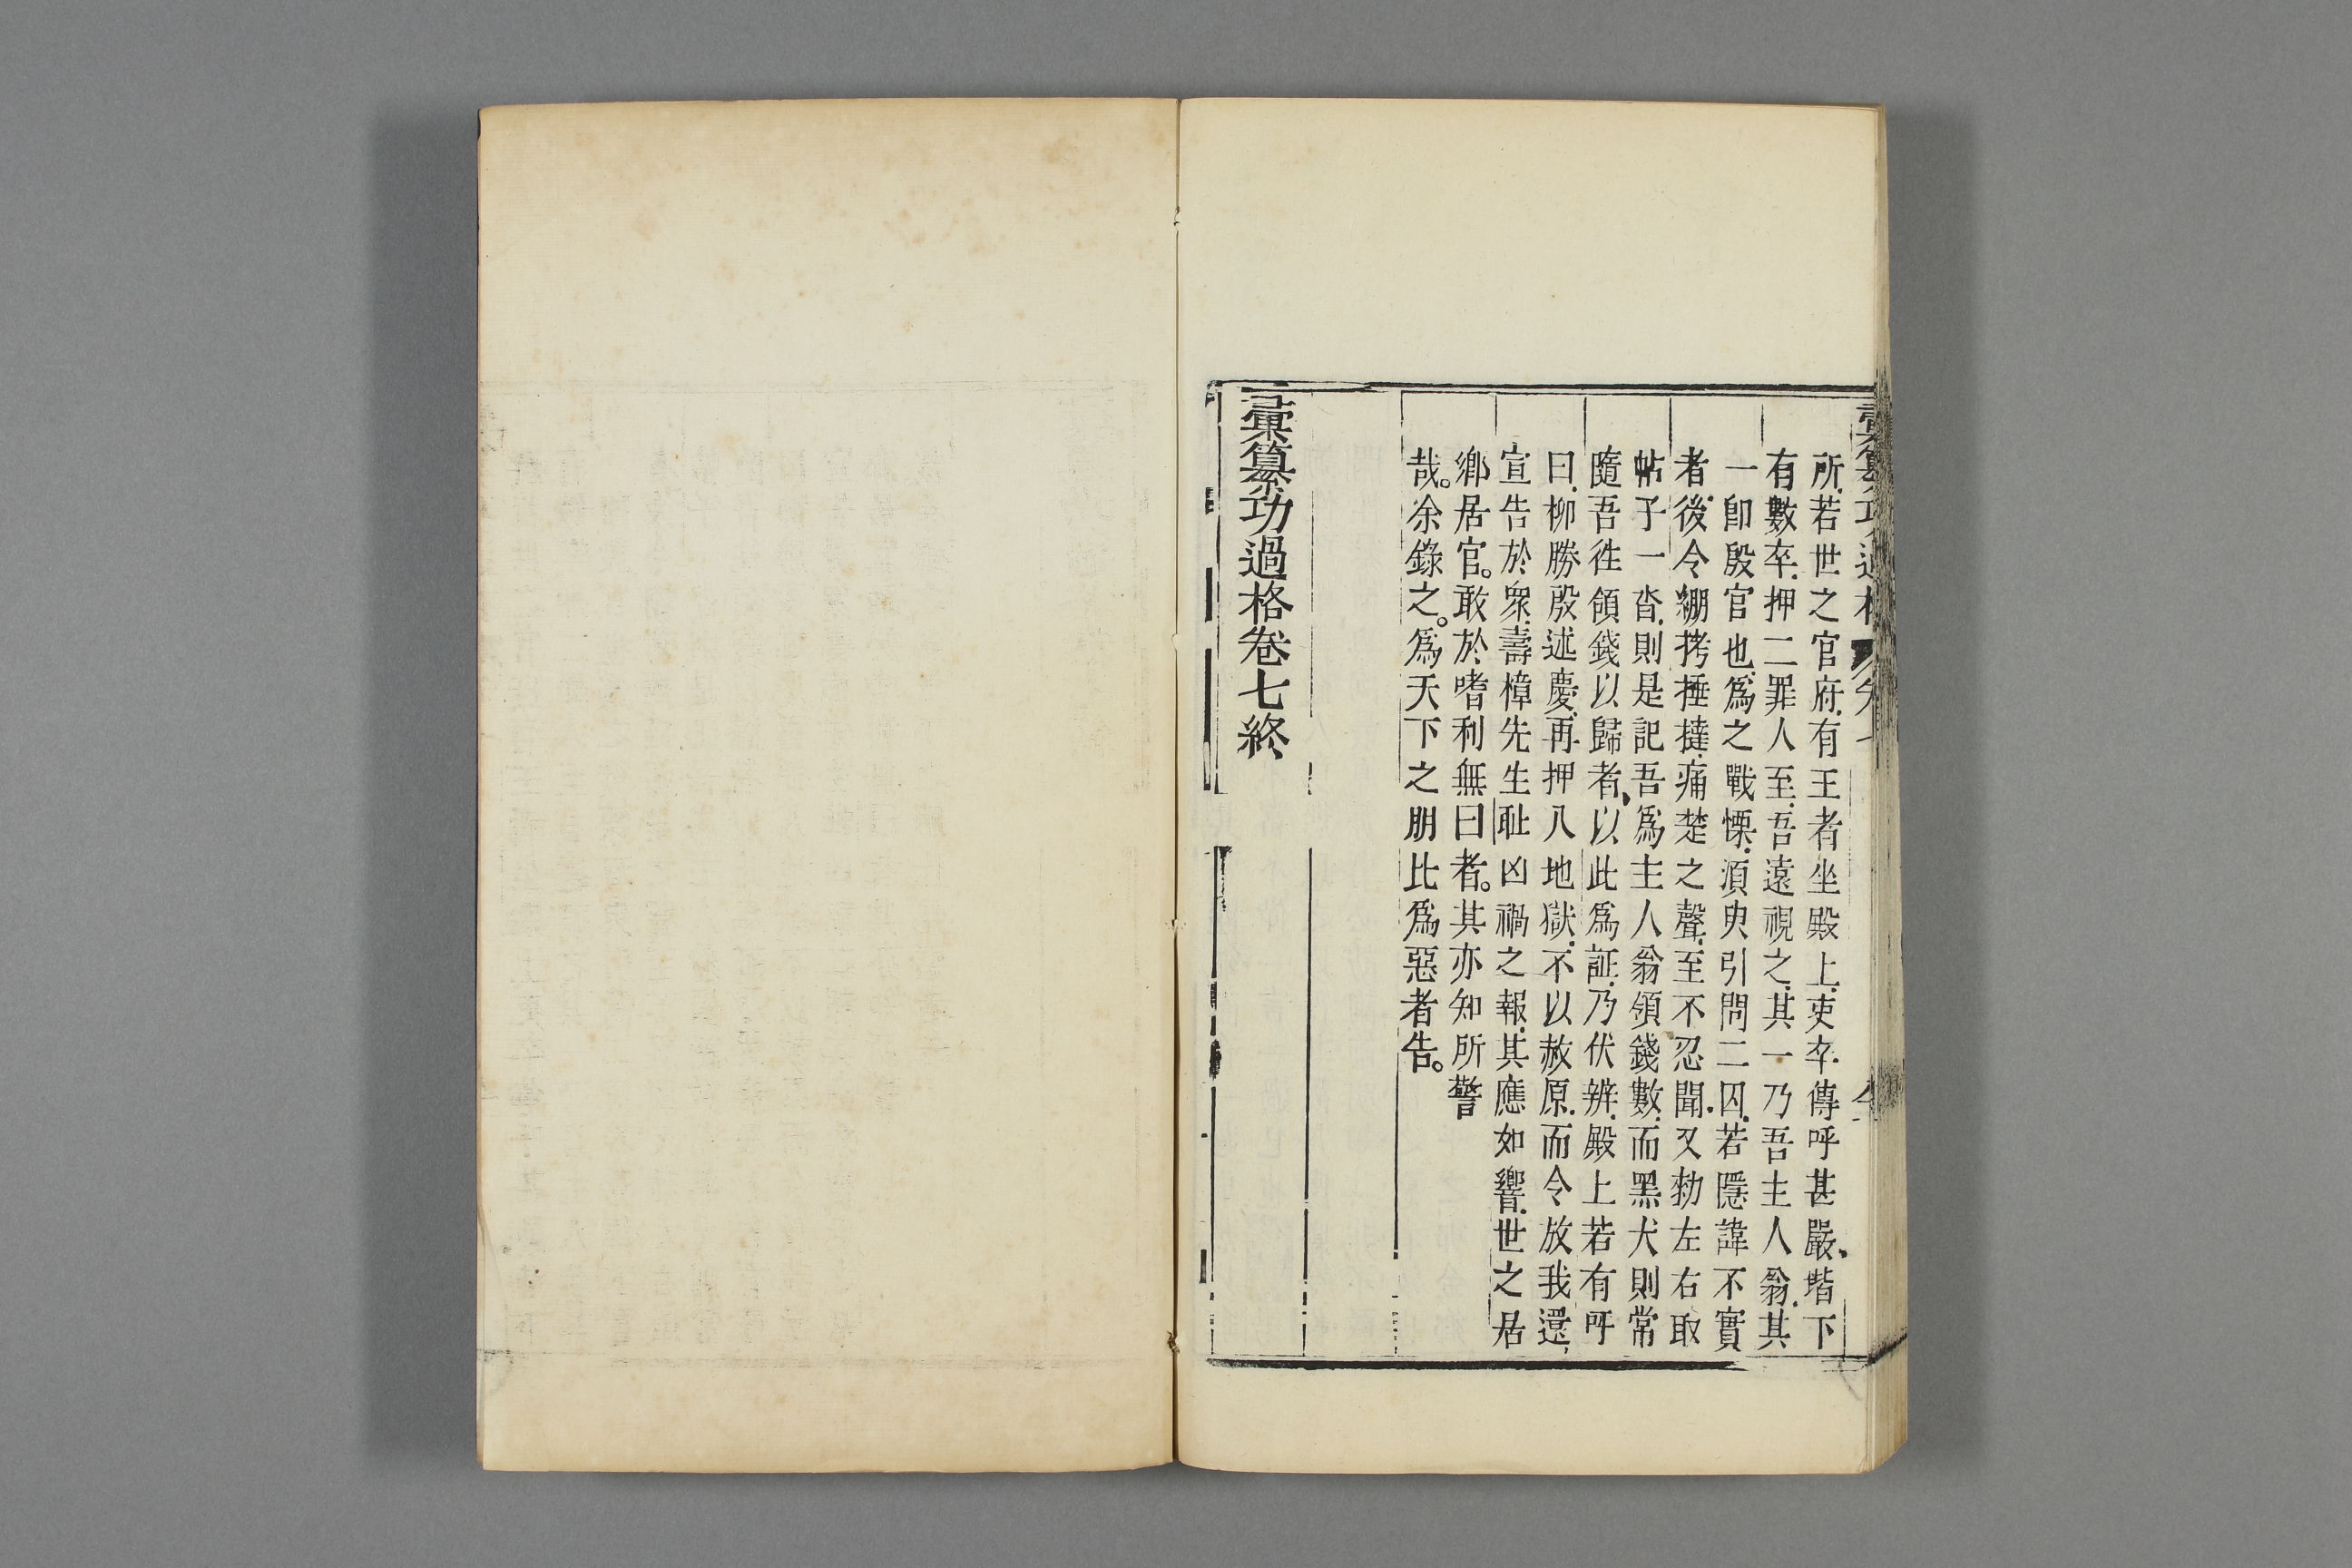 所若世之官府有王者坐殿上吏卒傳呼甚嚴堦下
有數卒押二罪人至吾遠視之其一乃吾主人翁其
一卽殷官也爲之戰慄須臾引問二囚若隱諱不實
者後令綳拷捶撻痛楚之聲至不忍聞又勑左右取
帖子一沓則是記吾爲主人翁領錢數而黑犬則常
隨吾徃領錢以歸者以此爲証乃伏辨殿上若有呼
曰柳勝殷述慶再押入地獄不以赦原而令放我還
宣告於衆壽樟先生耻凶禍之報其應如響世之居
鄉居官。敢於嗜利無曰者。其亦知所警
哉。余錄之。爲天下之朋比爲惡者告。
彙纂功過格卷七終